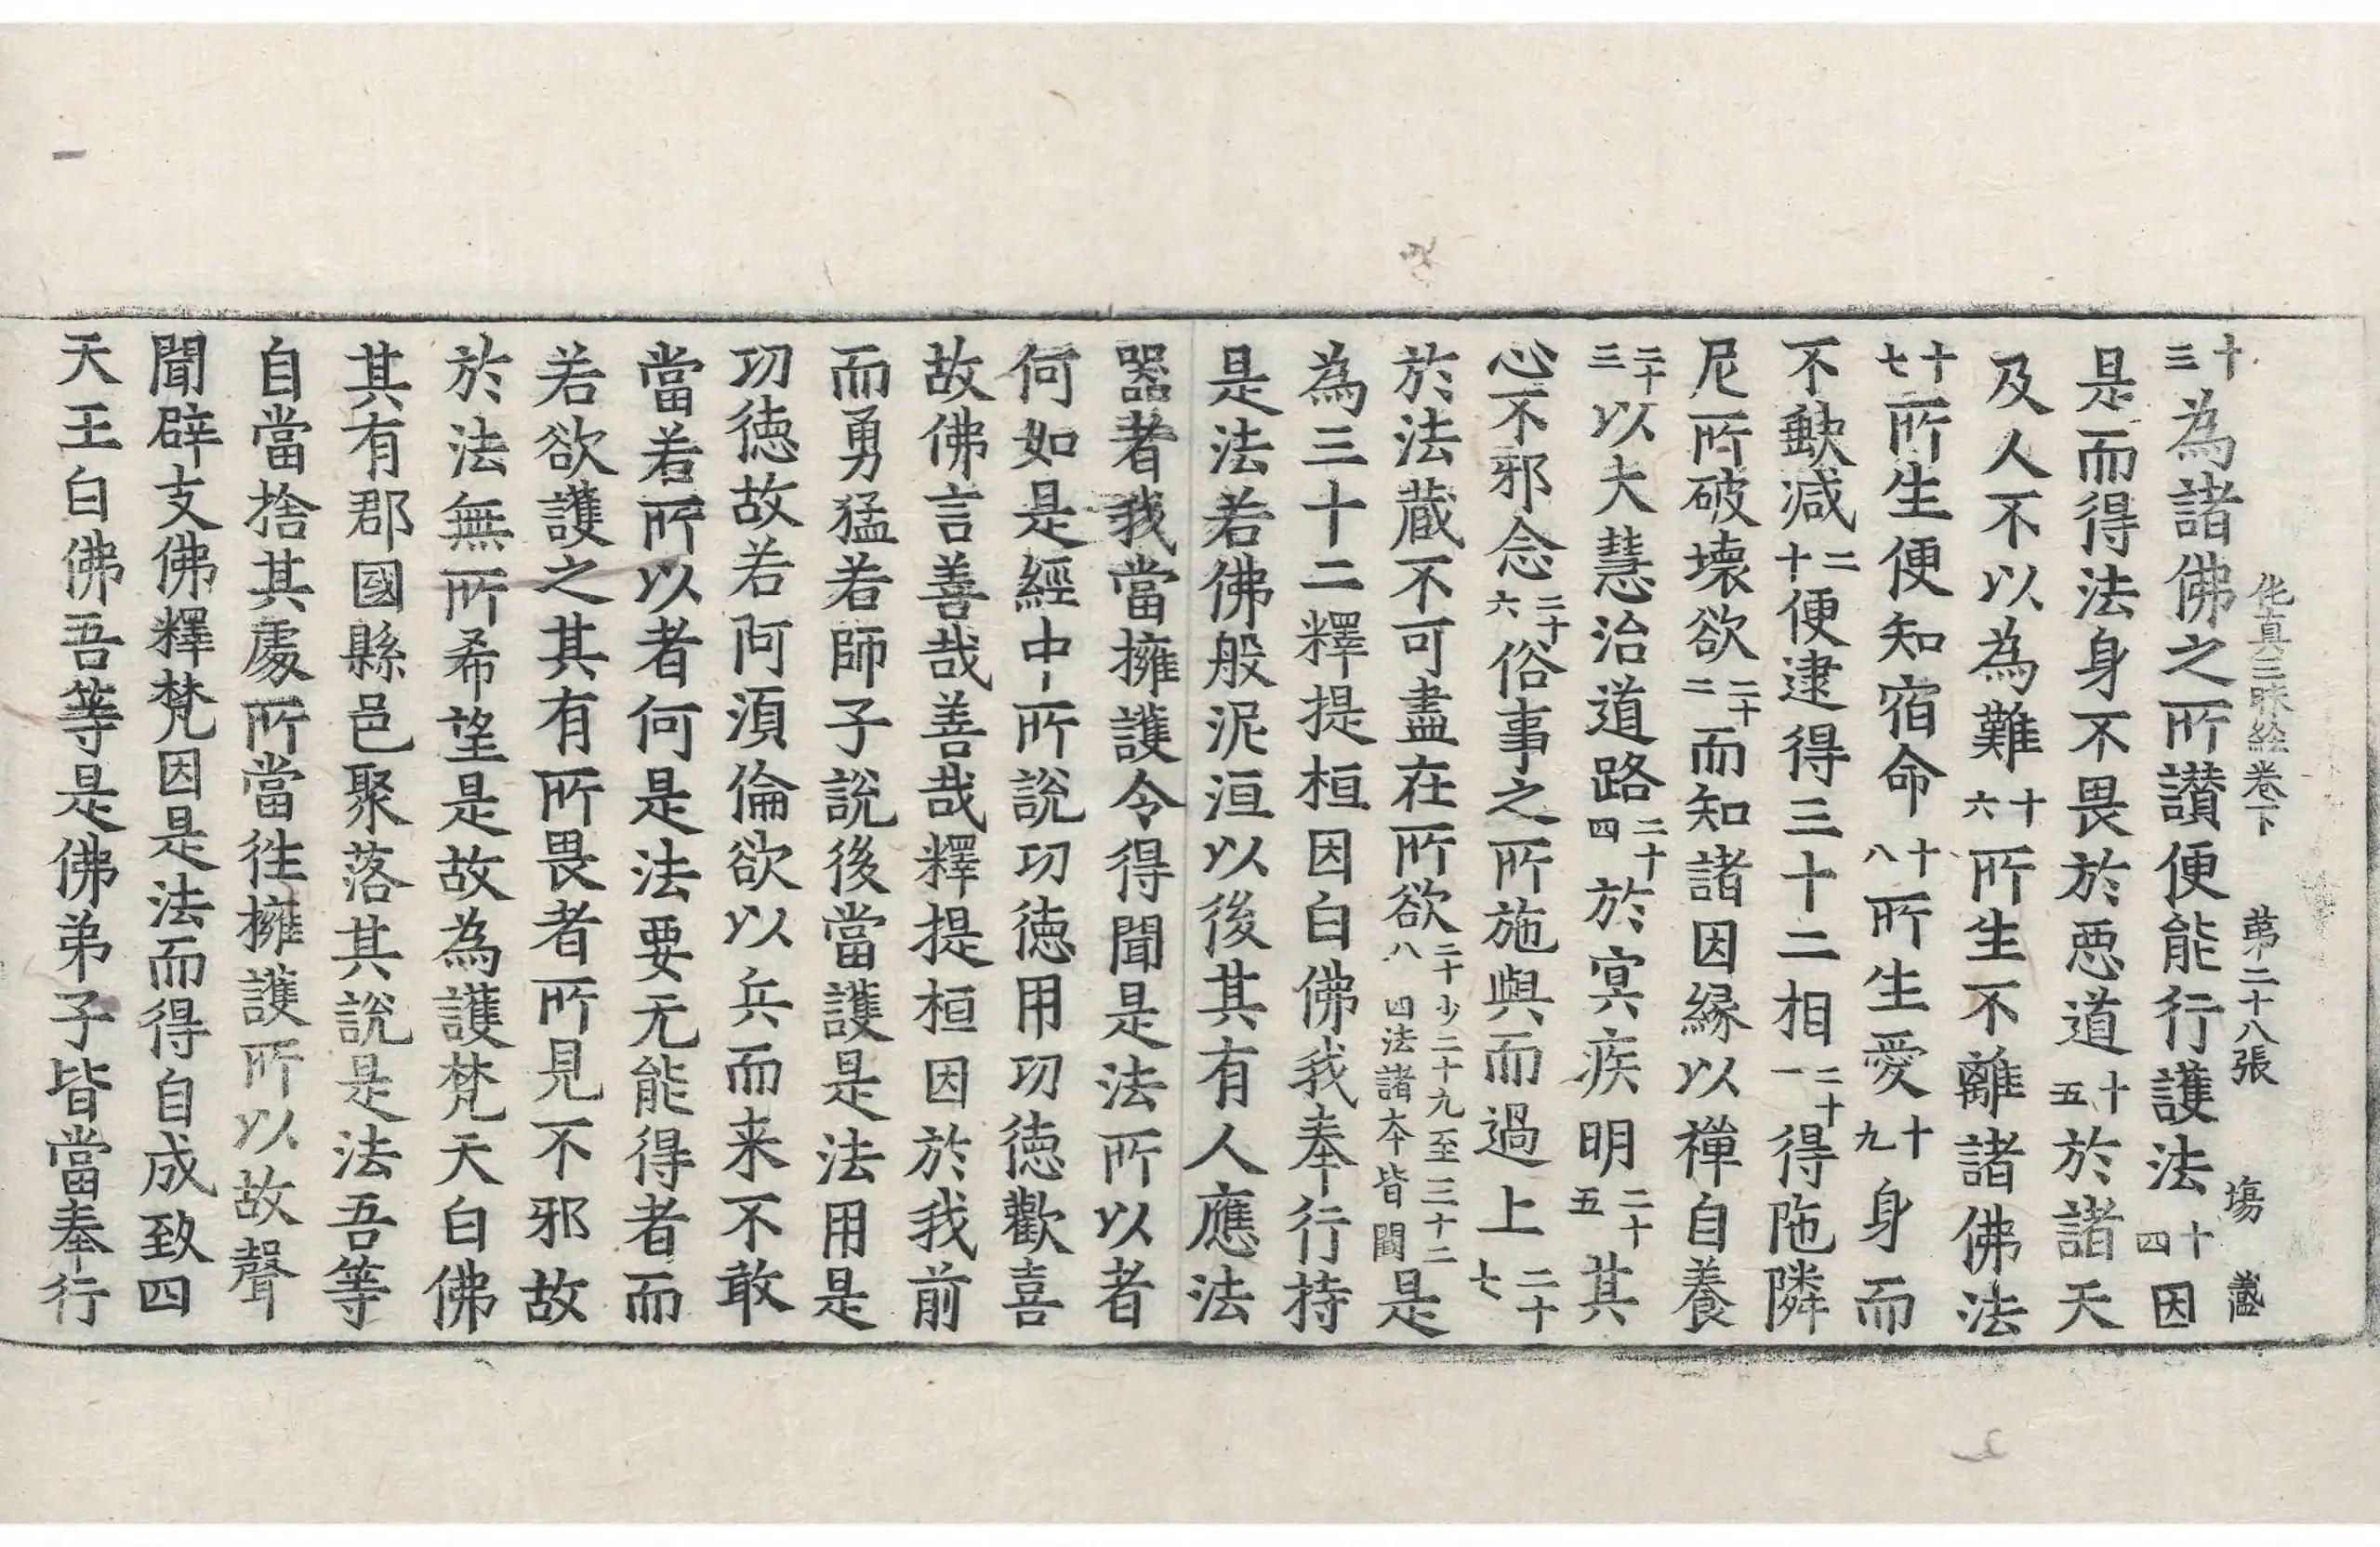 他真三昧経卷下　第二十八張　場
十三為諸佛之所讃便能行護法十四因
是而得法身不畏於惡道十五於諸天
及人不以為難十六所生不離諸佛法
十七所生便知宿命十八所生愛十九身而
不缺減二十便逮得三十二相二十一得陁隣
尼所破壞欲二十二而知諸因縁以禪自養
二十三以大慧治道路二十四於㝠疾明二十五其
心不邪念二十六俗事之所施與而過上二十七
於法藏不可盡在所欲二十八二十少二十九至三十二四法諸本皆闕是
為三十二釋提桓因白佛我奉行持
是法若佛般泥洹以後其有人應法
器者我當擁護令得聞是法所以者
何如是經中所說功德用功德歡喜
故佛言善哉善哉釋提桓因於我前
而勇猛若師子說後當護是法用是
功德故若阿湏倫欲以兵而来不敢
當若所以者何是法要无能得者而
若欲護之其有所畏者所見不邪故
於法無所希望是故為護梵天白佛
其有郡國縣邑聚落其說是法吾等
自當捨其處所當徃擁護所以故聲
聞辟支佛釋梵因是法而得自成致四
天王白佛吾等是佛弟子皆當奉行